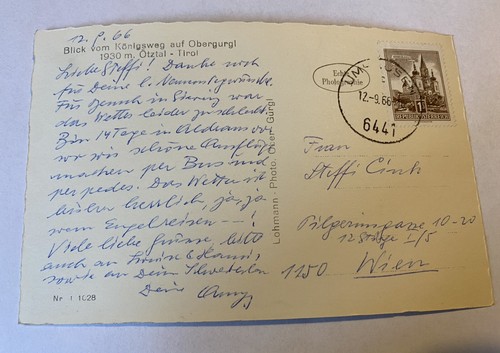 12.9.66
Blick vom Königsweg auf Obergurgl
1930 m. Ötztal - Tirol
Liebe Steffi! Danke noch
für Deine l.
Für Besuch in war
das Wetter leider zu schlecht.
Bin 14 Tage in Aldrans
wo wir schöne Ausflüge
machen per Bus und
per pedes. Das Wetter ist
bisher herrlich, ja, ja
wenn Engel reisen --!
Viele liebe Grüsse, bitte
auch an Louise & Hansi,
sowie an Dein Schwesterlein
Deine
Nr. 1 1028
Lohmann - Photo, Ober - Gurgl
Echte
Photographie
12.-9.66
6441
REPUBLIK ÖSTERREICH
Frau
Steffi
Pilgerimgasse 10-20
12 Stiege I/5
1150 Wien